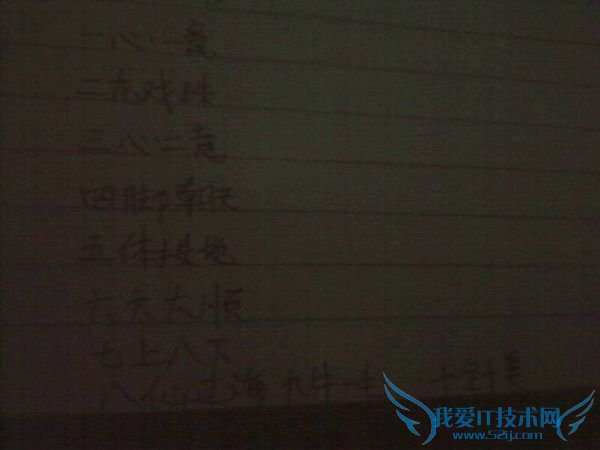 一心一意
二龙戏珠
三心二意
四脚朝天
五体投地
六六大顺
七上八下
八仙过海 九牛一毛 十全十美
我爱IT技术网
www.52ij.com